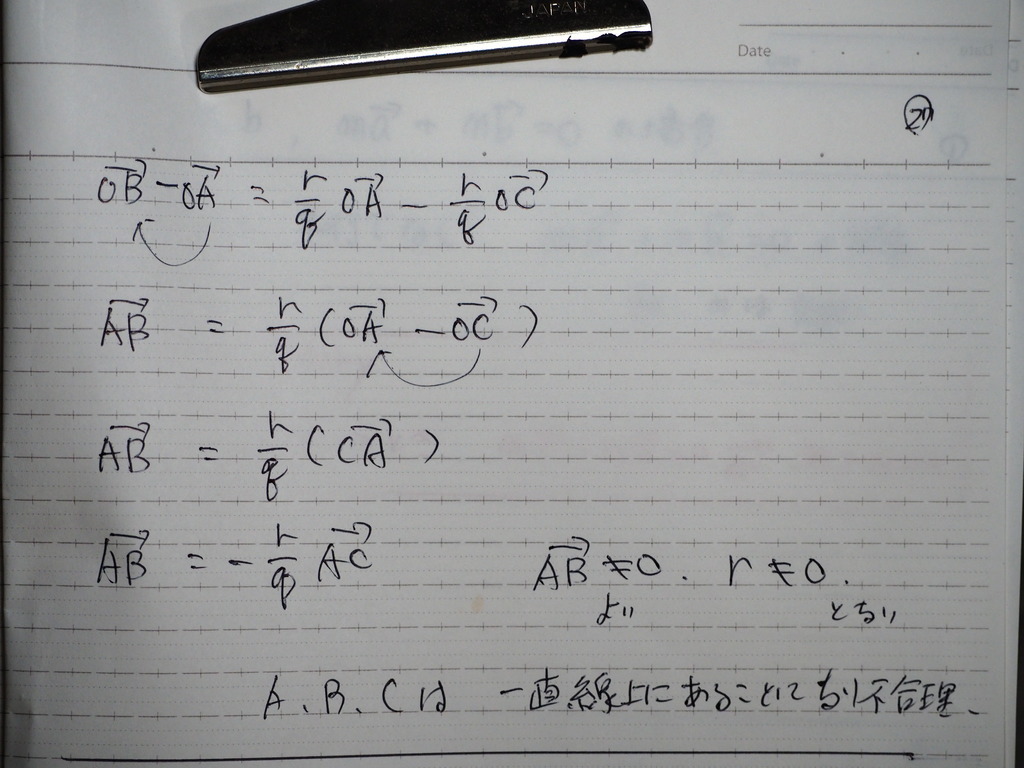 JAPAN
Date
OB→ - OA→ = r/q OA→ - r/q OC→
AB→ = r/q (OA→ - OC→)
AB→ = r/q (CA→)
AB→ = - r/q AC→ AB→ ≠ 0. r ≠ 0.
より となり
A、B、Cは 一直線上にあることになり不合理、